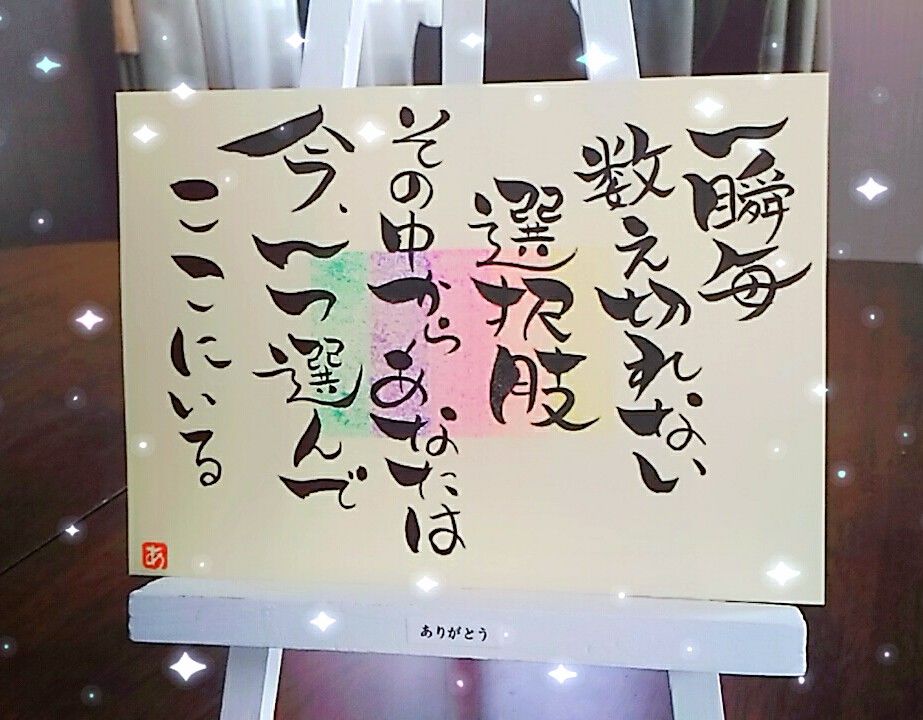 一瞬毎
数え切れない
選択肢
その中からあなたは
今、一つ選んで
ここにいる
あ
ありがとう